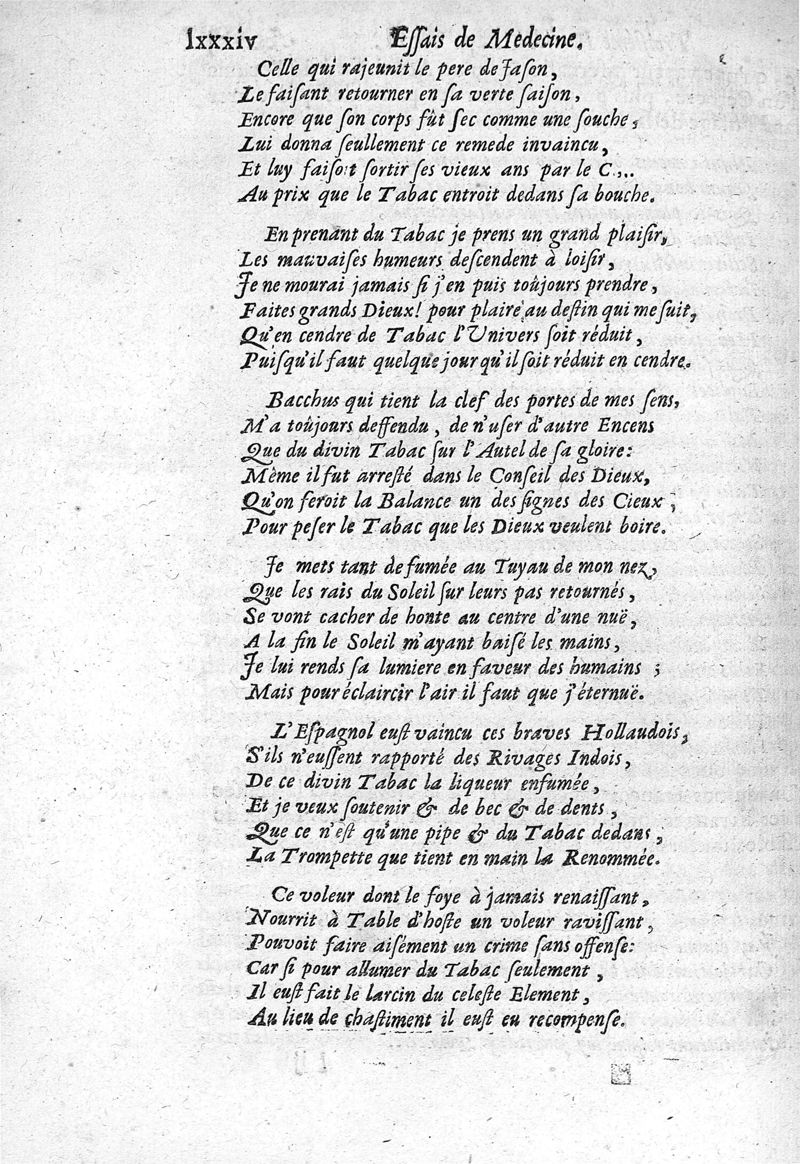 lxxxiv Essais de Medecine.
Celle qui rajeunit le pere de Jason,
Le faiſant retourner en ſa verte ſaiſon,
Encore que ſon corps fût ſec comme une ſouche,
Lui donna ſeullement ce remede invaincu,
Et luy faiſoit ſortir ſes vieux ans par le C...
Au prix que le Tabac entroit dedans ſa bouche.
En prenant du Tabac je prens un grand plaiſir,
Les mauvaiſes humeurs deſcendent à loiſir,
Je ne mourai jamais ſi j'en puis toûjours prendre,
Faites grands Dieux! pour plaire au deſtin qui me ſuit,
Qu'en cendre de Tabac l'Univers ſoit réduit,
Puiſqu'il faut quelque jour qu'il ſoit réduit en cendre.
Bacchus qui tient la clef des portes de mes ſens,
M'a toûjours deffendu, de n'uſer d'autre Encens
Que du divin Tabac ſur l'Autel de ſa gloire:
Mème il fut arreſté dans le Conſeil des Dieux,
Qu'on feroit la Balance un des ſignes des Cieux,
Pour peſer le Tabac que les Dieux veulent boire.
Je mets tant de fumée au Tuyau de mon nez,
Que les rais du Soleil ſur leurs pas retournés,
Se vont cacher de honte au centre d'une nuë,
A la fin le Soleil m'ayant baiſé les mains,
Je lui rends ſa lumiere en faveur des humains ;
Mais pour éclaircir l'air il faut que j'éternuë.
L'Eſpagnol euſt vaincu ces braves Hollaudois,
S'ils n'euſſent rapporté des Rivages Indois,
De ce divin Tabac la liqueur enfumée,
Et je veux ſoutenir & de bec & de dents,
Que ce n'eſt qu'une pipe & du Tabac dedans,
La Trompette que tient en main la Renommée.
Ce voleur dont le foye à jamais renaiſſant,
Nourrit à Table d'hoſte un voleur raviſſant,
Pouvoit faire aiſément un crime ſans offenſe:
Car ſi pour allumer du Tabac ſeulement,
Il euſt fait le larcin du celeſte Element,
Au lieu de chaſtiment il euſt eu recompenſe.